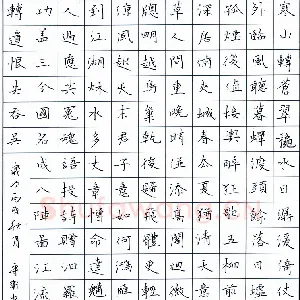 寒山轉蒼翠秋水日潺湲倚杖
外臨風聽暮蟬渡頭餘落日墟
孤煙復值接輿醉狂歌五柳前
深居俯夾城春去夏猶清天意
草人間重晚晴併添高閣迥微
窗明越鳥巢乾後歸飛體更輕
涼風起天末君子意如何鴻雁
到江湖秋水多文章憎命達魑
人過應共冤魂語投詩贈汨羅
功蓋三分國名成八陣圖江流
轉遺恨失吞吳 歲次丙戌秋月